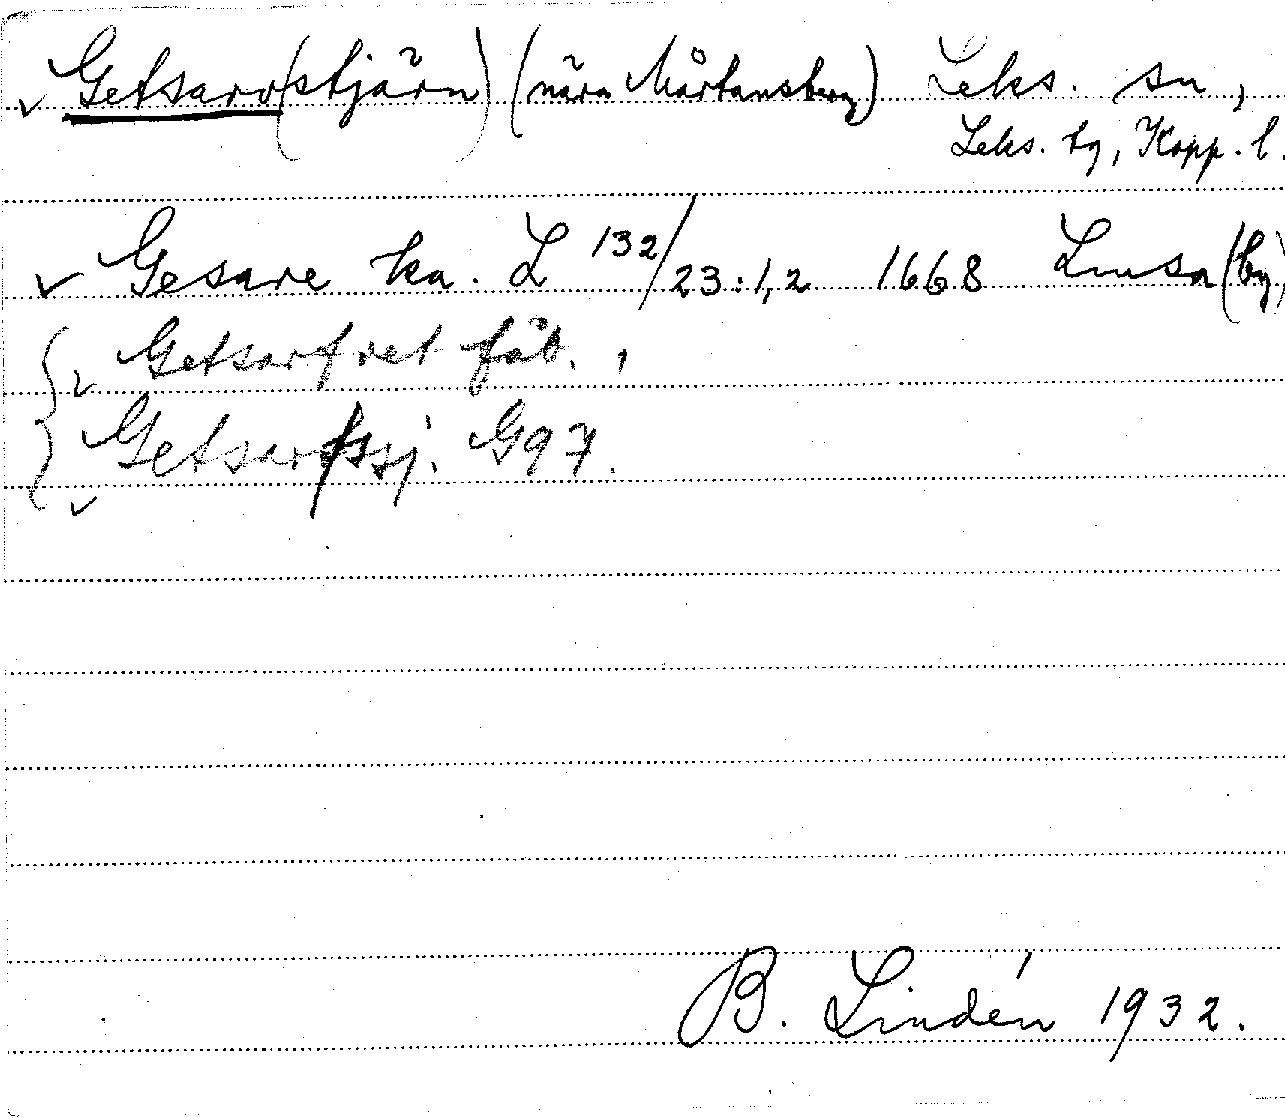 Getsarv(stjärn) (nära Mårtansberg) Leks. sn,
Leks. tg, Kopp. l.
Gesare ka. L 132/23:1,2 1668 Lima (by)
Getsarfvet fäb.,
Getsarfssj. G97.
B. Lindén 1932.